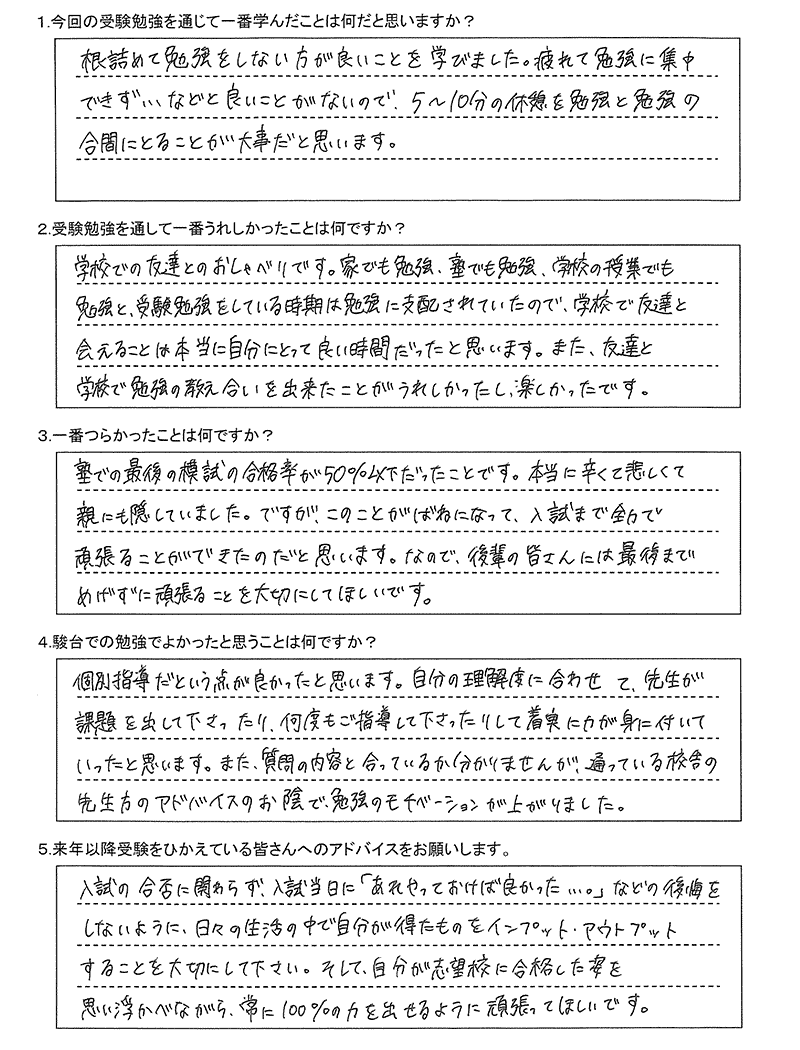 1.今回の受験勉強を通じて一番学んだことは何だと思いますか？
根詰めて勉強をしない方が良いことを学びました。疲れて勉強に集中
できず…などと良いことがないので、5〜10分の休憩を勉強と勉強の
合間にとることが大事だと思います。
2.受験勉強を通して一番うれしかったことは何ですか？
学校での友達とのおしゃべりです。家でも勉強、塾でも勉強、学校の授業でも
勉強と、受験勉強をしている時期は勉強に支配されていたので、学校で友達と
会えることは本当に自分にとって良い時間だったと思います。また、友達と
学校で勉強の教え合いを出来たことがうれしかったし、楽しかったです。
3.一番つらかったことは何ですか？
塾での最後の模試の合格率が50%以下だったことです。本当に辛くて悲しくて
親にも隠していました。ですが、このことがばねになって、入試まで全力で
頑張ることができたのだと思います。なので、後輩の皆さんには最後まで
めげずに頑張ることを大切にしてほしいです。
4.駿台での勉強でよかったと思うことは何ですか？
個別指導だという点が良かったと思います。自分の理解度に合わせて、先生が
課題を出して下さったり、何度もご指導して下さったりして着実に力が身に付いて
いったと思います。また、質問の内容と合っているか分かりませんが、通っている校舎の
先生方のアドバイスのお陰で、勉強のモチベーションが上がりました。
5.来年以降受験をひかえている皆さんへのアドバイスをお願いします。
入試の合否に関わらず、入試当日に「あれやっておけば良かった…。」などの後悔を
しないように、日々の生活の中で自分が得たものをインプット・アウトプット
することを大切にして下さい。そして、自分が志望校に合格した姿を
思い浮かべながら、常に100%の力を出せるように頑張ってほしいです。